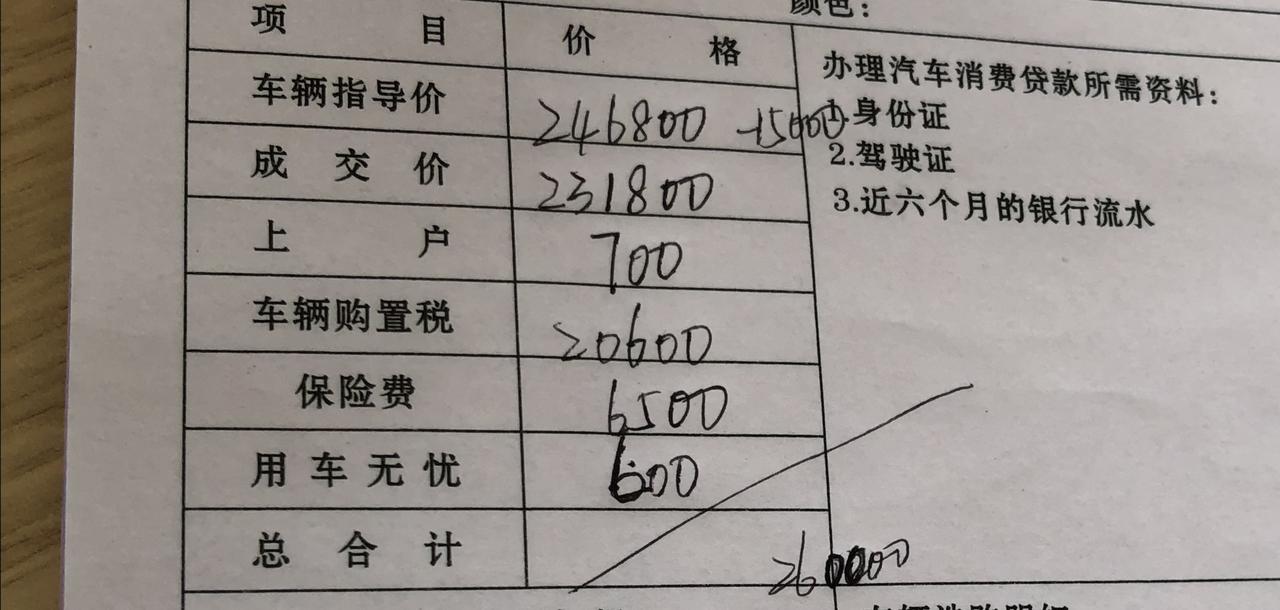 颜色：
项 目 价 格
办理汽车消费贷款所需资料：
车辆指导价 246800 -15000
1.身份证
成交价 231800
2.驾驶证
3.近六个月的银行流水
上户 700
车辆购置税 20600
保险费 6500
用车无忧 600
总合计 260000